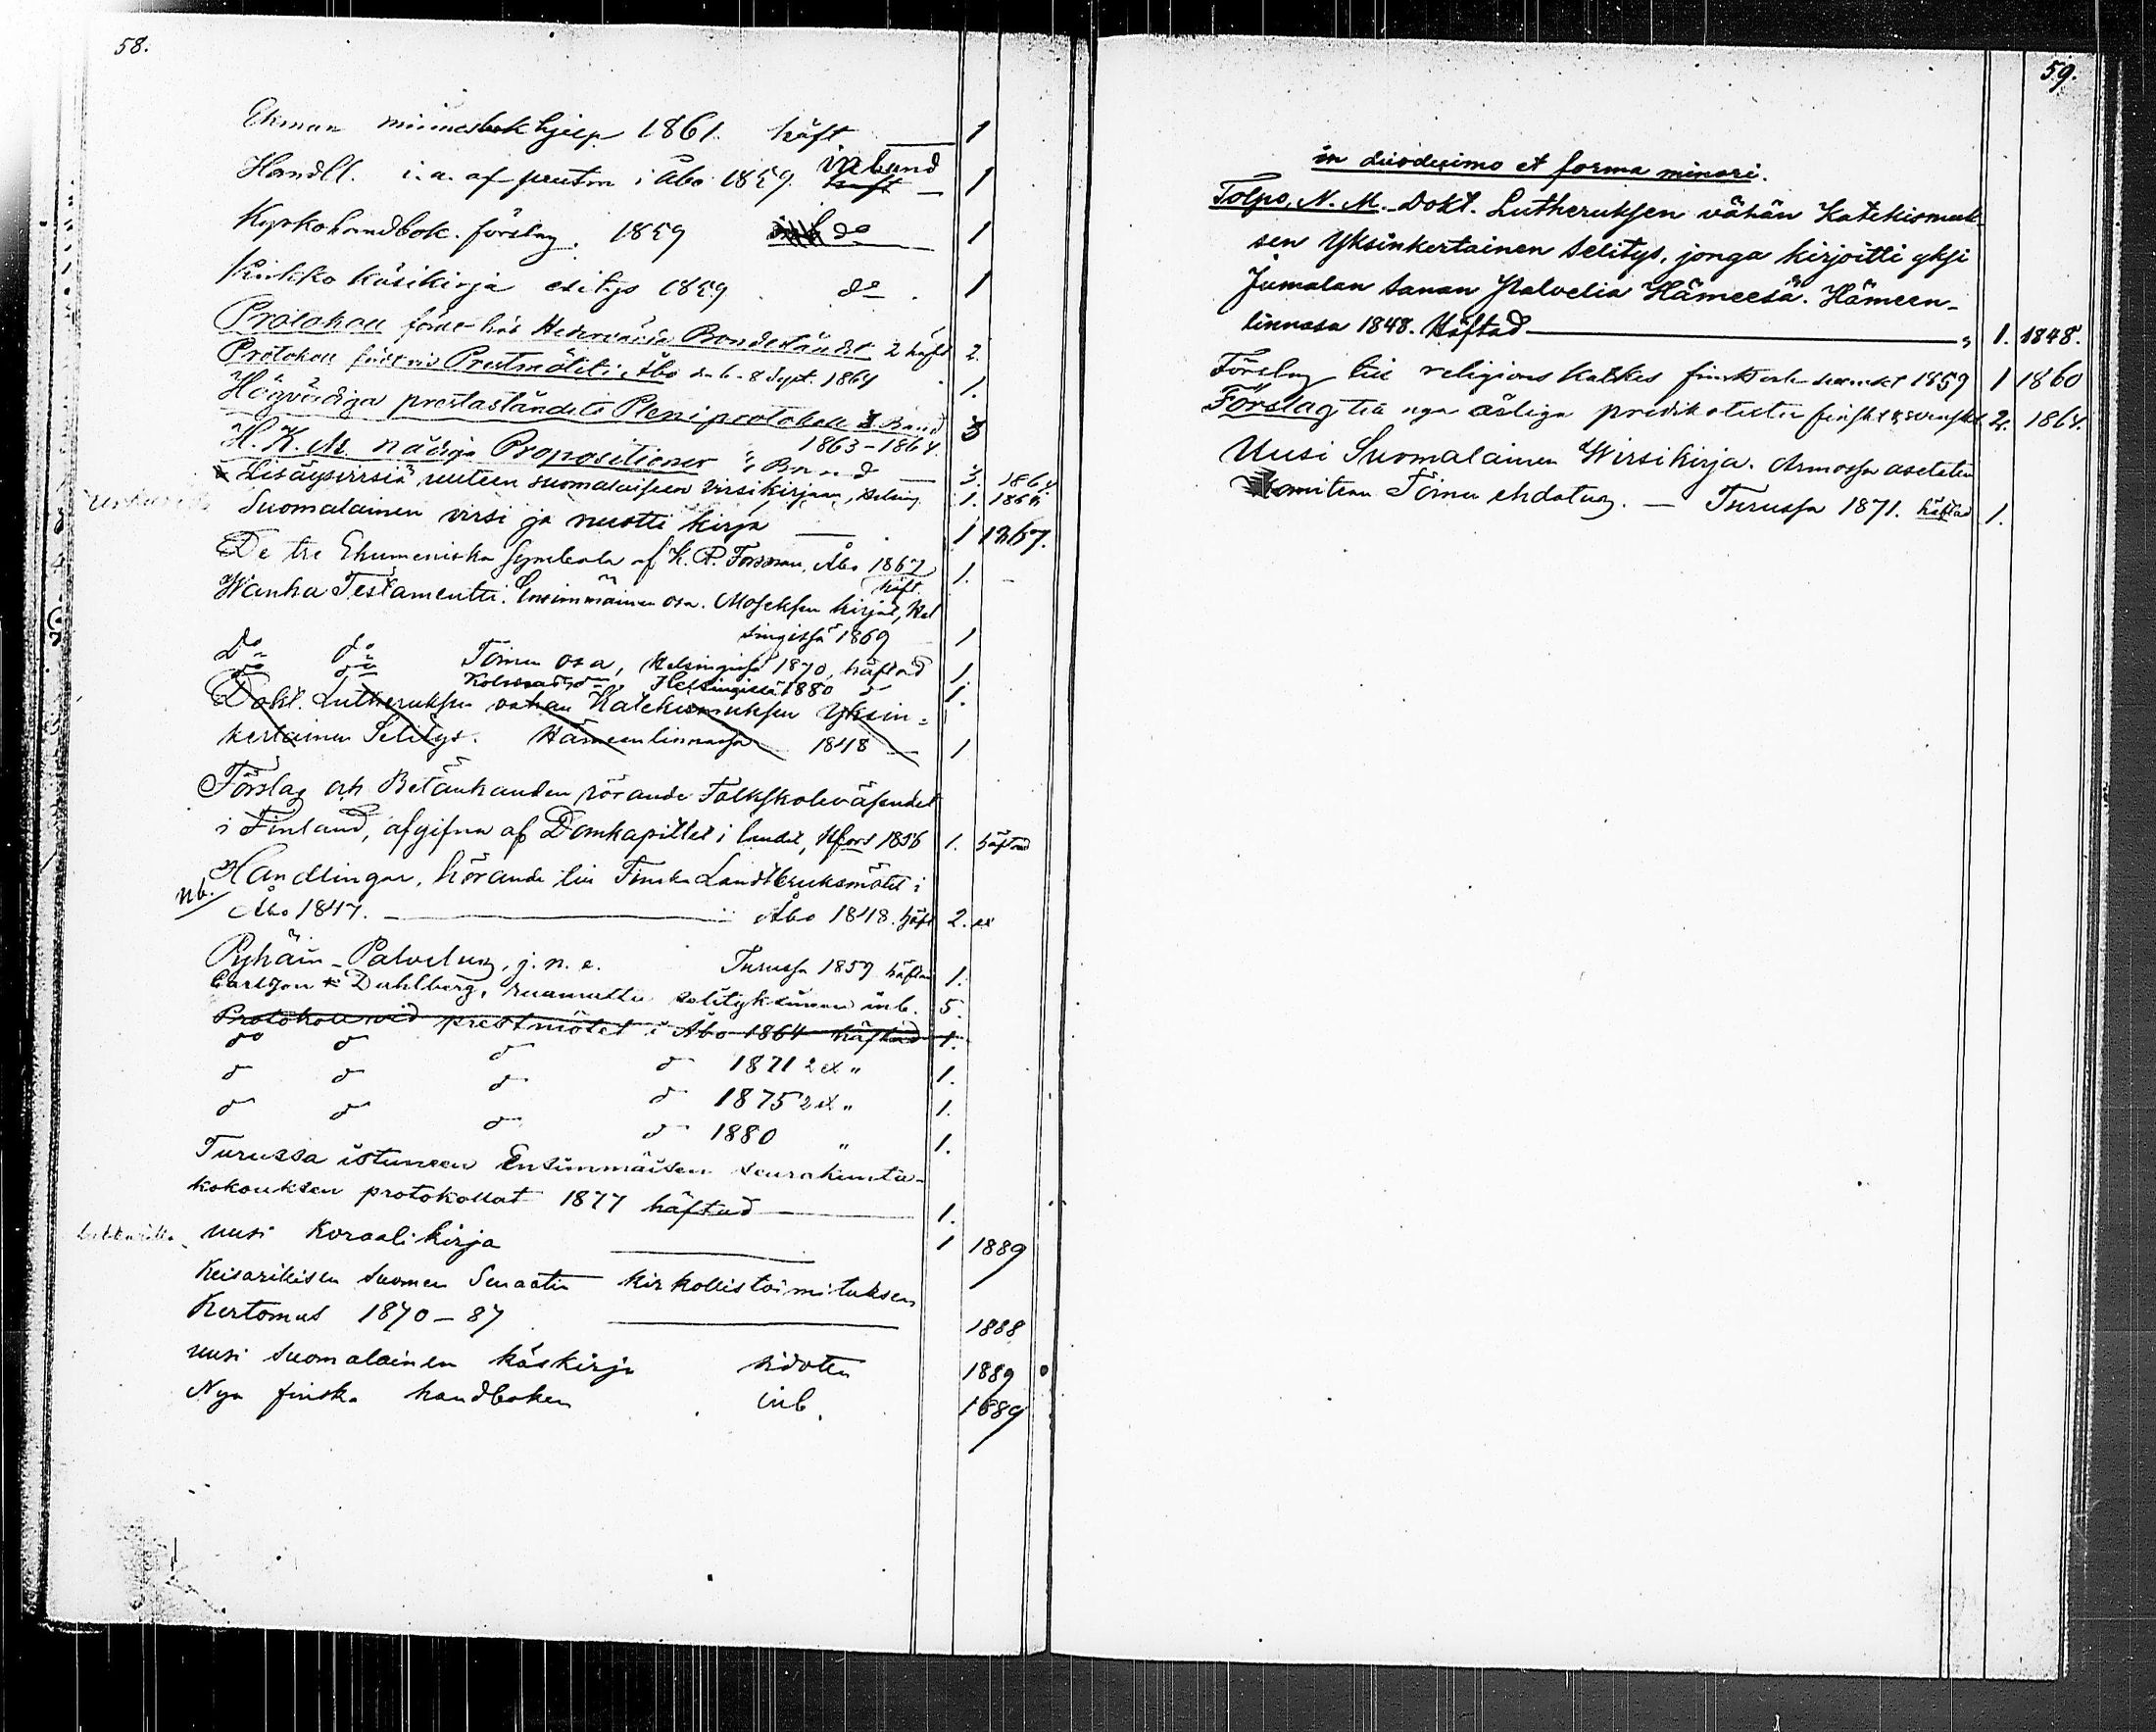 58.
Ekman minnesbok hjelp 1861. häft 1
Handll. i. a. af prestm i Åbo 1859. inbund häft 1
Kyrkohandbok. förslag. 1859 do 1
Kirkko käsikirja esitys 1859 do 1
Protokoll förde hos Hedervärda Bondeståndet 2 häft 2.
Protokoll fördt vid Prestmötet i Åbo den 6-8 Sept. 1864 1.
Högvördiga prestaståndets Pleniprotokoll 3 Band 3
1863-1864.
H. K. M. nådiga Propositioner 3 Band 3. 1864
Lisäysvirsiä uuteen suomalaiseen virsikirjaan, Helsing. 1.
Suomalainen virsi ja nuotti kirja 1 1867.
De tre Ekumeniska Symbola af K. R. Forsman, Åbo 1867 häft. 1. -
Wanha Testamentti. Ensimmäinen osa. Moseksen kirjat, Hel
singissä 1869 1
Do do Toinen osa, Helsingissä 1870, häftad 1.
do do Kolmas osa, Helsingissä 1880 1.
Dokt. Lutheruksen vähän Katekismuksen Yksin-
kertainen Selitys. Hämeenlinnassa 1848 1
Förslag och Betänkanden rörande Folkskoleväsendet
i Finland, afgifna af Domkapitlet i landet, Hfors 1856 1. häftad
nb. Handlingar, hörande till Finska Landtbruksmötet i
Åbo 1847. Åbo 1848. häft 2. ex
Pyhäin-Palvelus, j. n. e. Turussa 1859 häftad 1.
Carlsson & Dahlberg, raamattu selityksineen inb. 5.
Protokoll vid prestmötet i Åbo 1864 häftad 1.
do d d d 1871 2 ex " 1.
d d d d 1875 2 ex " 1.
d d d d 1880 " 1.
Turussa istuneen Ensimmäisen seurakunta-
kokouksen protokollat 1877 häftad 1.
uusi koraalikirja 1 1889
Keisarillisen Suomen Senaatin kirkollistoimituksen
Kertomus 1870-87 1888
uusi suomalainen käskirja sidottu 1889
Nya finska handboken inb. 1889
59.
in duodecimo et forma minori.
Tolpo, N. M. Dokt. Lutheruksen vähän Katekismuk-
sen Yksinkertainen selitys, jonga kirjoitti yksi
Jumalan sanan Palvelia Hämeesä. Hämeen-
linnasa 1848. Häftad 1. 1848.
Förslag till religions katkes finskt och svenskt 1859 1 1860
Förslag till nya årliga predikotexter finskt & svenskt 2. 1864.
Uusi Suomalainen Wirsikirja. Armossa asetetun
Komitean Toinen ehdotus. - Turussa 1871. häftad 1.